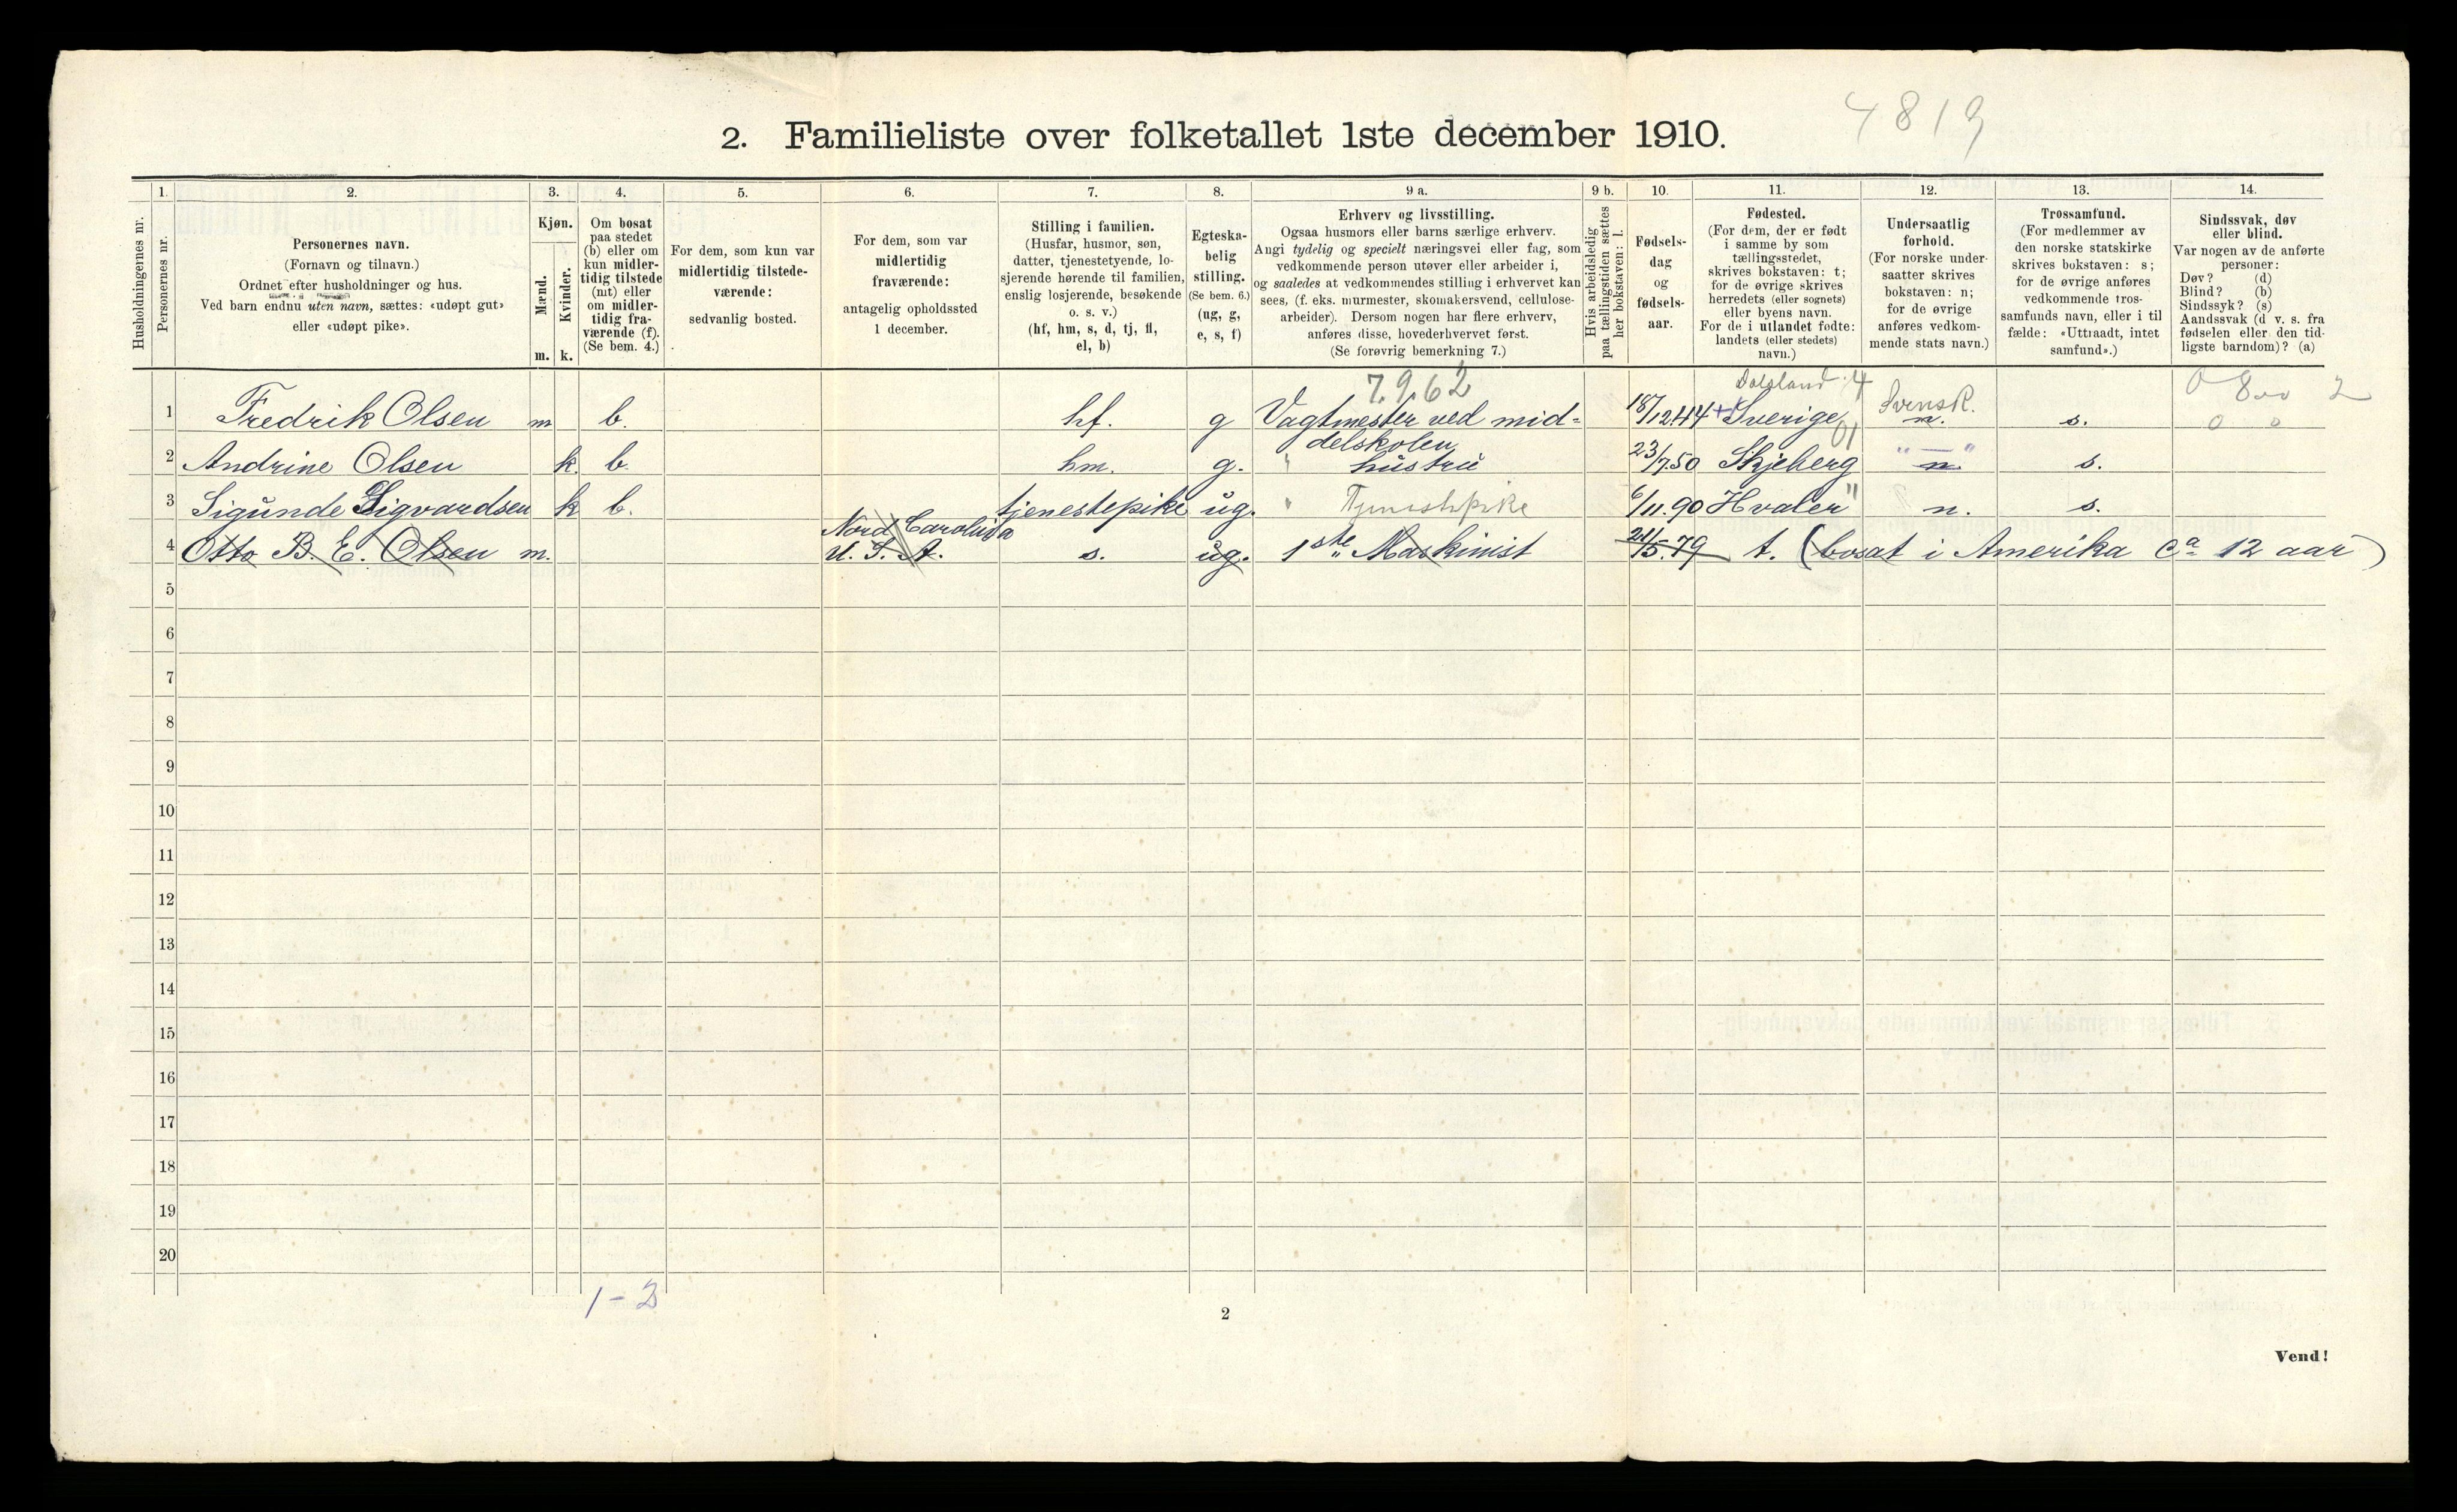 4819
2. Familieliste over folketallet 1ste december 1910.
1. 2. 3. 4. 5. 6. 7. 8. 9 a. 9 b. 10. 11. 12. 13. 14.
Husholdningernes nr.
Personernes nr.
Personernes navn.
(Fornavn og tilnavn.)
Ordnet efter husholdninger og hus.
Ved barn endnu uten navn, sættes: «udøpt gut»
eller «udøpt pike».
Kjøn.
Mænd.
Kvinder.
m. k.
Om bosat
paa stedet
(b) eller om
kun midler-
tidig tilstede
(mt) eller
om midler-
tidig fra-
værende (f).
(Se bem. 4.)
For dem, som kun var
midlertidig tilstede-
værende:
sedvanlig bosted.
For dem, som var
midlertidig
fraværende:
antagelig opholdssted
1 december.
Stilling i familien.
(Husfar, husmor, søn,
datter, tjenestetyende, lo-
sjerende hørende til familien,
enslig losjerende, besøkende
o. s. v.)
(hf, hm, s, d, tj, fl,
el, b)
Egteska-
belig
stilling.
(Se bem. 6.)
(ug, g,
e, s, f)
Erhverv og livsstilling.
Ogsaa husmors eller barns særlige erhverv.
Angi tydelig og specielt næringsvei eller fag, som
vedkommende person utøver eller arbeider i,
og saaledes at vedkommendes stilling i erhvervet kan
sees, (f. eks. murmester, skomakersvend, cellulose-
arbeider). Dersom nogen har flere erhverv,
anføres disse, hovederhvervet først.
(Se forøvrig bemerkning 7.)
Hvis arbeidsledig
paa tællingstiden sættes
her bokstaven: l.
Fødsels-
dag
og
fødsels-
aar.
Fødested.
(For dem, der er født
i samme by som
tællingsstedet,
skrives bokstaven: t;
for de øvrige skrives
herredets (eller sognets)
eller byens navn.
For de i utlandet fødte:
landets (eller stedets)
navn.)
Undersaatlig
forhold.
(For norske under-
saatter skrives
bokstaven: n;
for de øvrige
anføres vedkom-
mende stats navn.)
Trossamfund.
(For medlemmer av
den norske statskirke
skrives bokstaven: s;
for de øvrige anføres
vedkommende tros-
samfunds navn, eller i til
fælde: «Uttraadt, intet
samfund».)
Sindssvak, døv
eller blind.
Var nogen av de anførte
personer:
Døv? (d)
Blind? (b)
Sindssyk? (s)
Aandssvak (d v. s. fra
fødselen eller den tid-
ligste barndom)? (a)
7.9.62 Dalsland 4
1 Fredrik Olsen m b. hf. g Vagtmester ved mid= 18/12 44 + Sverige Svensk. n. s.
delskolen
2 Andrine Olsen k. b. hm. g. " hustru 23/7.50 Skjeberg "—" n s.
3 Sigunde Sigvardsen k b. tjenestepike ug. " Tjenestepike 6/11.90 Hvaler n. s.
Nord Carolina
4 Otto B. E. Olsen m. U. S. A. s. ug. 1ste Maskinist 21/5.79 t. (bosat i Amerika ca 12 aar)
5
6
7
8
9
10
11
12
13
14
15
16
17
18
19
20
1 - 2
2
Vend!